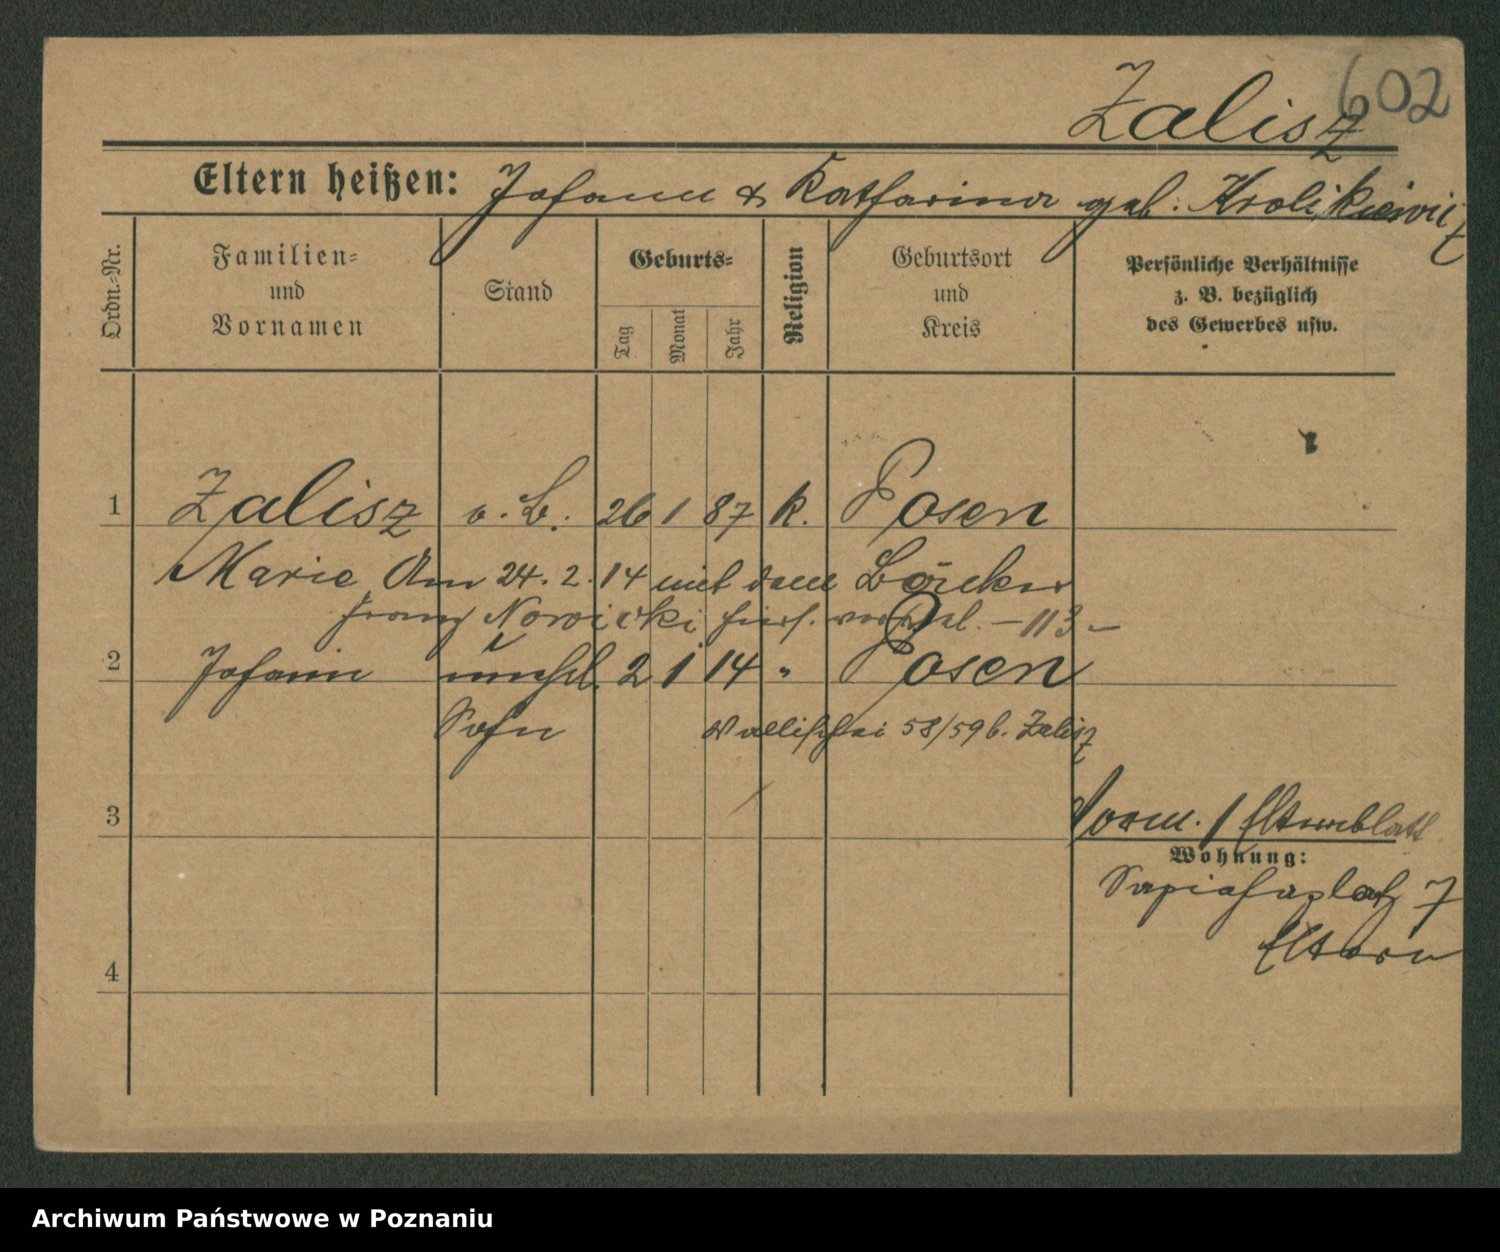 602
Zalisz
Eltern heißen: Johann & Katharina geb. Krolikiewicz
Ordn.-Nr.
Familien-
und
Vornamen
Stand
Geburts-
Tag
Monat
Jahr
Religion
Geburtsort
und
Kreis
Persönliche Verhältnisse
z. B. bezüglich
des Gewerbes usw.
1 Zalisz o. B. 26 1 87 k. Posen
Marie Am 24. 2. 14 mit dem Bäcker
Franz Nowicki hies. verehel. – 113 –
2 Johann unehel. 2 1 14 " Posen
Sohn Wallischei 58/59 b. Zalisz
3
Vorm. / Elternblatt
Wohnung:
Sapiehaplatz 7
Eltern
4
Archiwum Państwowe w Poznaniu